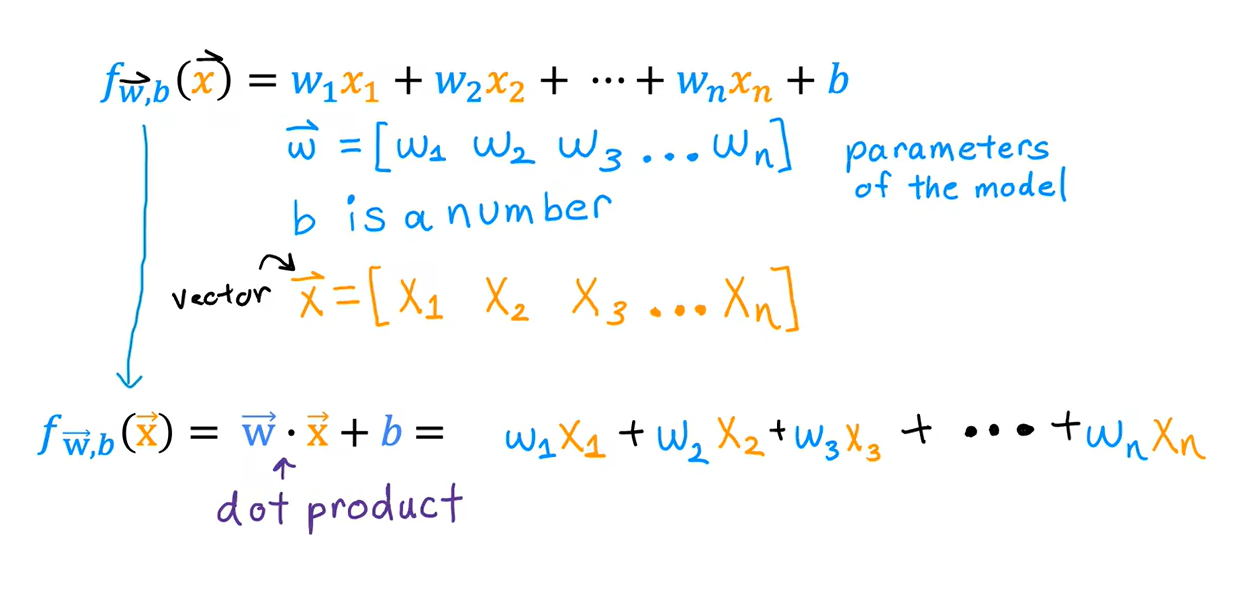 f_{w⃗,b}(x⃗) = w₁x₁ + w₂x₂ + ⋯ + wₙxₙ + b
w⃗ = [w₁ w₂ w₃ ... wₙ]
parameters
of the model
b is a number
vector x⃗ = [x₁ x₂ x₃ ... xₙ]
f_{w⃗,b}(x⃗) = w⃗ · x⃗ + b = w₁x₁ + w₂x₂ + w₃x₃ + ... + wₙxₙ
dot product